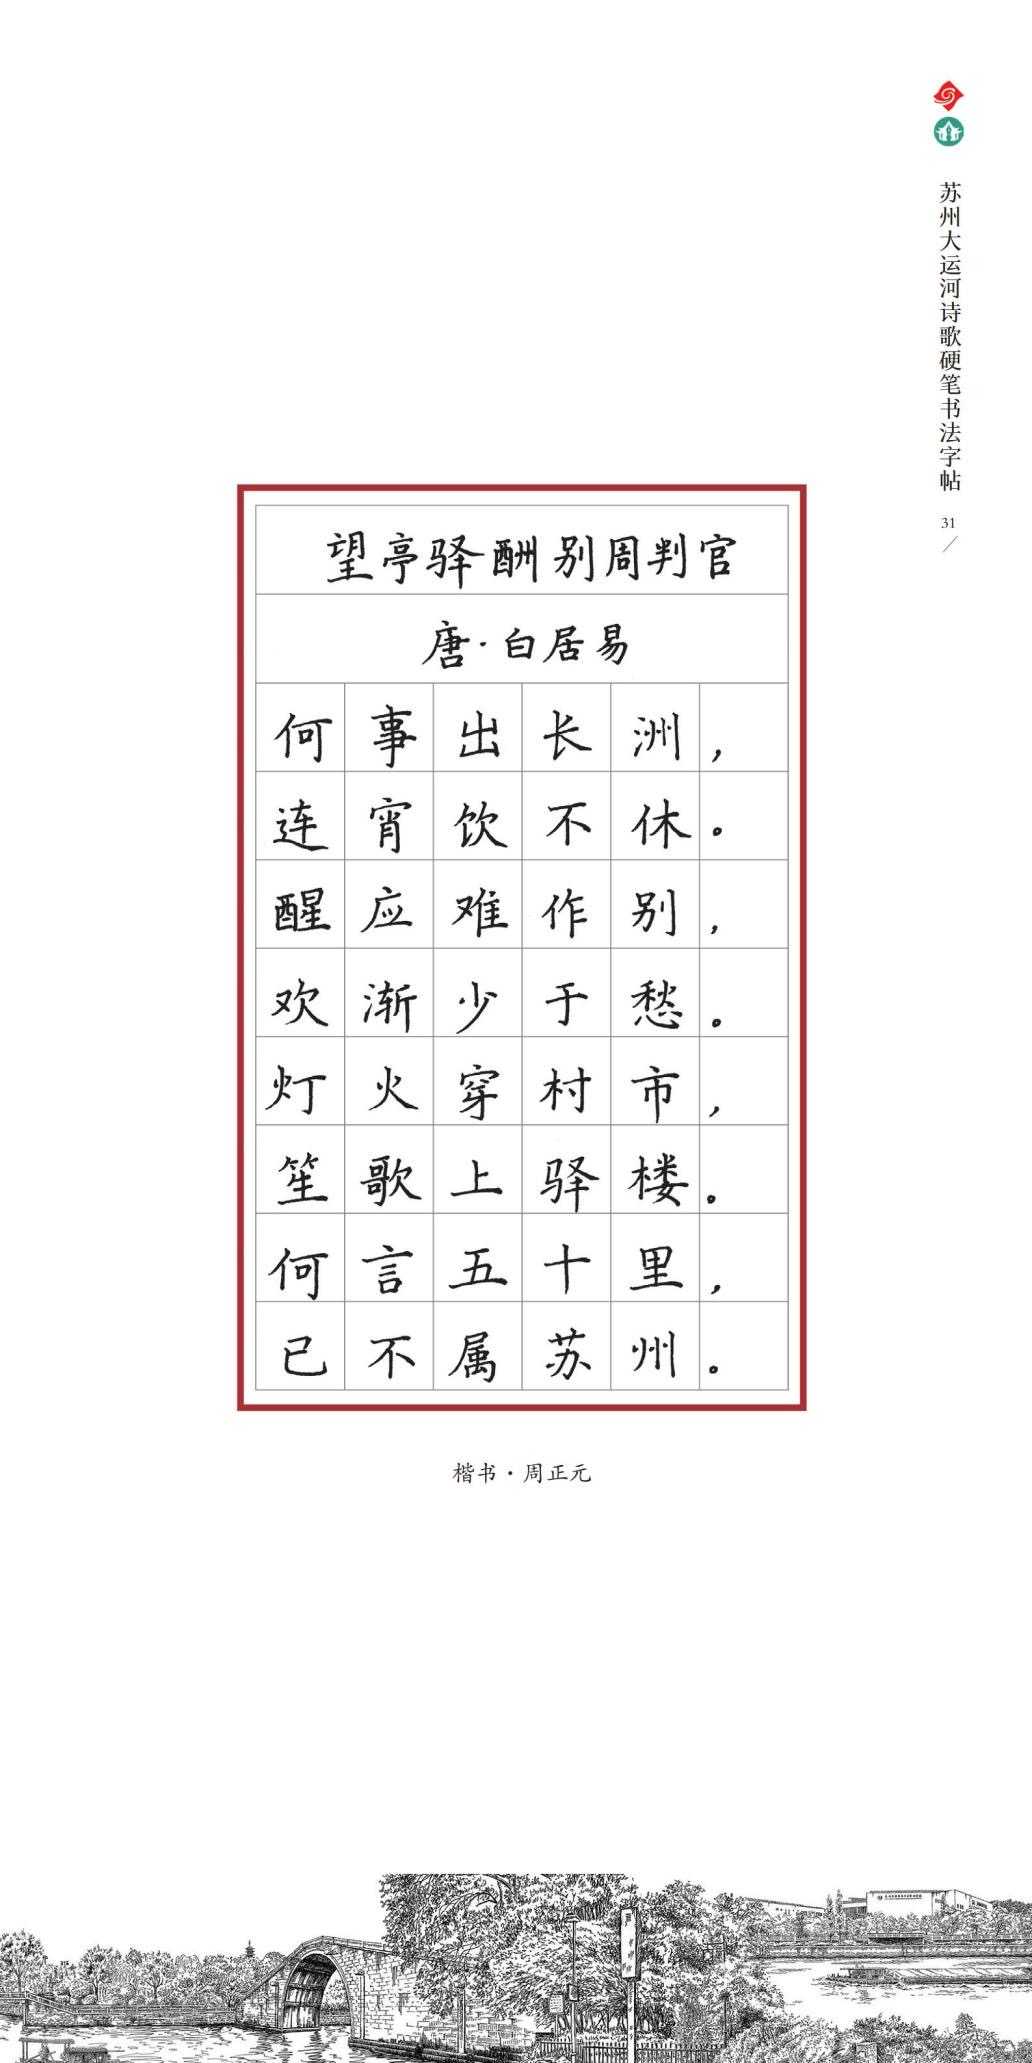 苏州大运河诗歌硬笔书法字帖
31
望亭驿酬别周判官
唐·白居易
何事出长洲，
连宵饮不休。
醒应难作别，
欢渐少于愁。
灯火穿村市，
笙歌上驿楼。
何言五十里，
已不属苏州。
楷书·周正元